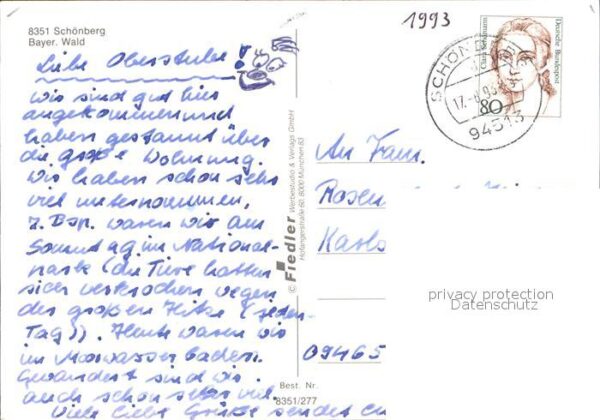 8351 Schönberg
Bayer. Wald
Liebe Oberstube!
Wir sind gut hier
angekommen und
haben gestaunt über
die große Wohnung.
Wir haben schon sehr
viel unternommen,
z. Bsp. waren wir am
Sonntag im National-
park (die Tiere hatten
sich verkrochen wegen
der großen Hitze (jeden
Tag)). Heute waren wir
im Mooswasser baden.
Gewandert sind wir
auch schon sehr viel.
Viele liebe Grüße sendet
© Fiedler Werbestudio & Verlags GmbH
Hofangerstraße 60, 8000 München 83
Best. Nr.
8351/277
1993
SCHÖNB
17.-
.93-
94513
Clara Schumann
Deutsche Bundespost
80
An Fam.
Rosen
Karls
09465
privacy protection
Datenschutz